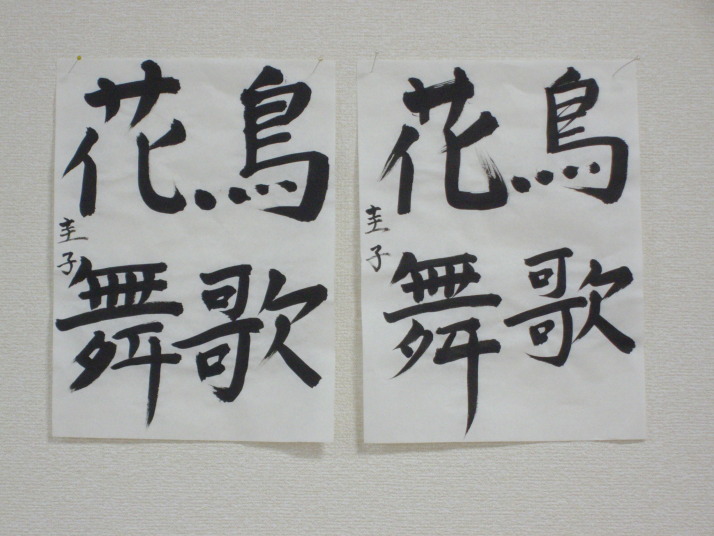 鳥歌
花舞
圭子
鳥歌
花舞
圭子